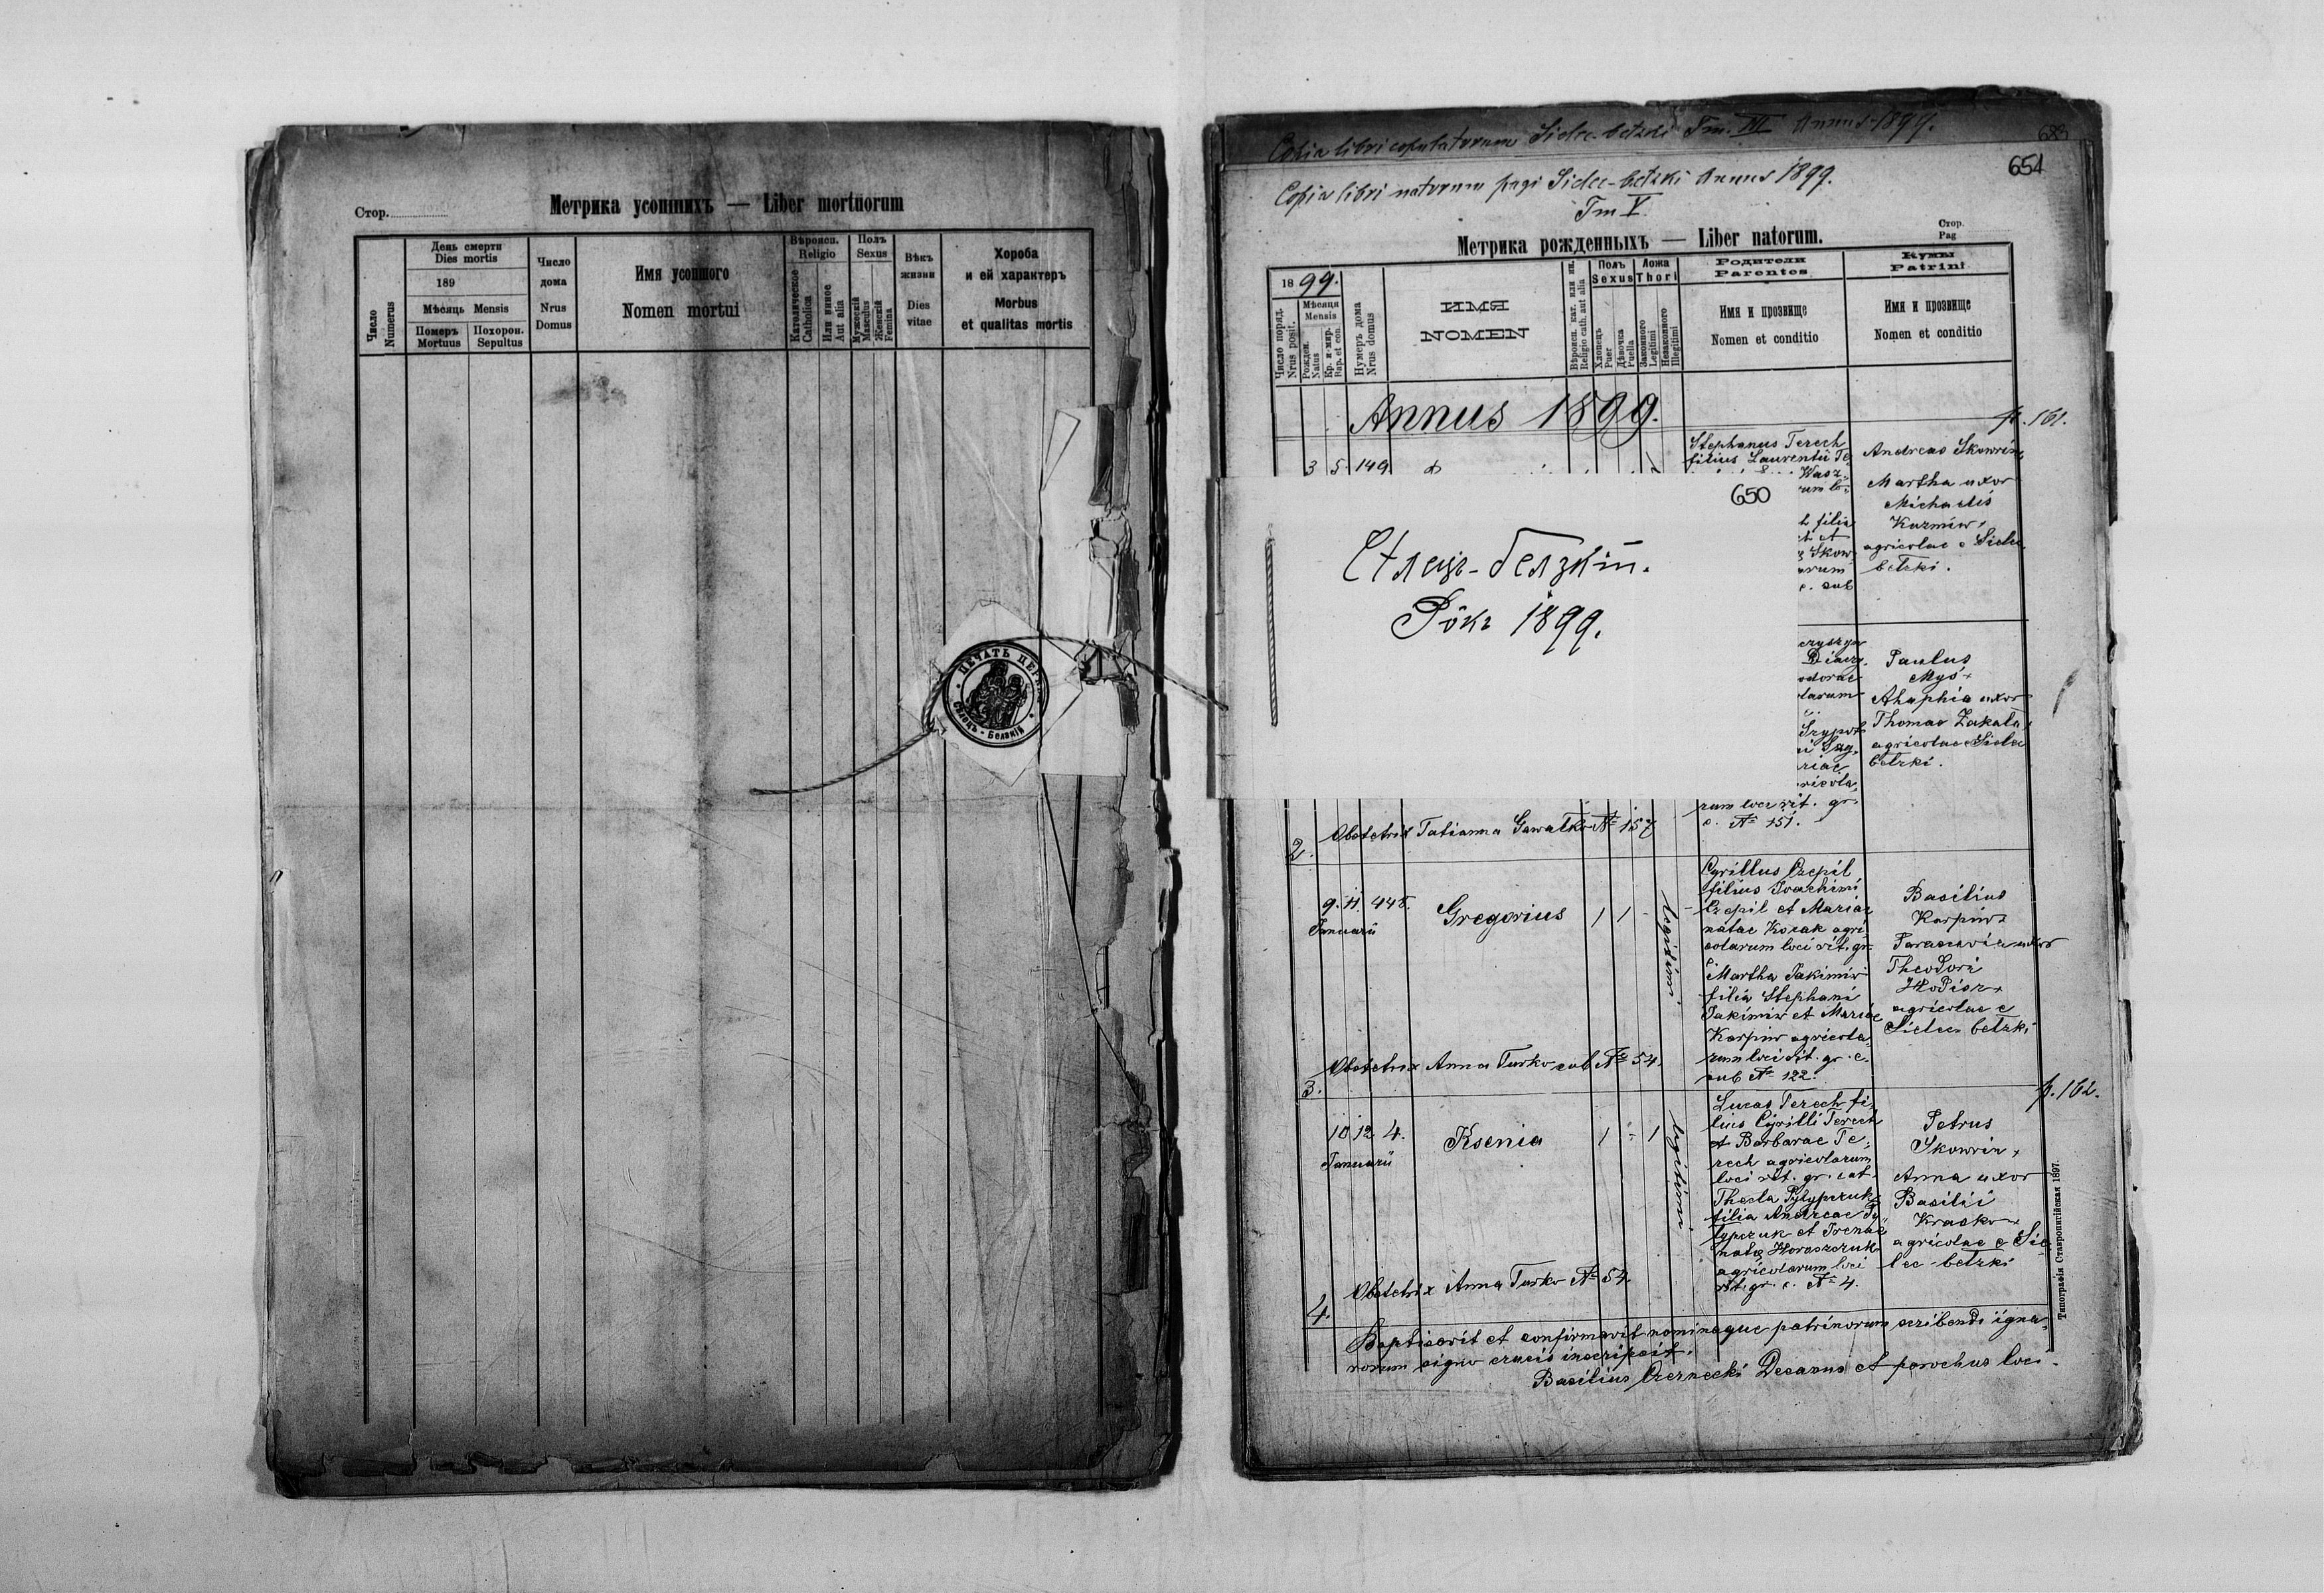 Стор.
Метрика усопшихъ — Liber mortuorum
Число
Numerus
День смерти
Dies mortis
189
Мѣсяць Mensis
Померъ
Mortuus
Похорон.
Sepultus
Число
дома
Nrus
Domus
Имя усопшого
Nomen mortui
Вѣроисп.
Religio
Католическое
Catholica
Или инное
Aut alia
Полъ
Sexus
Мужескій
Masculus
Женскій
Femina
Вѣкъ
жизни
Dies
vitae
Хороба
и ей характеръ
Morbus
et qualitas mortis
ПЕЧАТЬ ЦЕРКВ
Сѣлець - Белзкій
Copia libri copulatorum Sielec-bełzki Tm. III Annus 1899.
683
654
Copia libri natorum pagi Sielec-bełzki Annus 1899.
Tm V.
Стор.
Pag
Метрика рожденныхъ — Liber natorum.
1899.
Число поряд.
Nrus posit.
Мѣсяця
Mensis
Рожден.
Natus
Кр. и мир.
Bap. et con.
Нумеръ дома
Nrus domus
ИМЯ
NOMEN
Вѣроисп. кат. или ин.
Religio cath. aut alia
Полъ
Sexus
Хлопець
Puer
Дѣвочка
Puella
Ложа
Thori
Законного
Legitimi
Незаконного
Illegitimi
Родители
Parentes
Имя и прозвище
Nomen et conditio
Кумы
Patrini
Имя и прозвище
Nomen et conditio
Annus 1899.
p. 161.
3 5 149
Stephanus Terech
filius Laurentii Te
Andreas Skowrin
Martha uxor
Michaelis
Kuzmiw
agricolae e Sielec
bełzki.
650
Сѣлець-белзкій.
Рôкъ 1899.
Paulus
Myś
Ahaphia uxor
Thomae Zakala
agricolae e Sielec
bełzki.
rum loci rit. gr.
c. № 151.
Obstetrix Tatianna Gawalko № 157
2.
9. 11. 448.
Januarii
Gregorius
1 1 -
legitimi
Cyrillus Czepil
filius Joachimi
Czepil et Mariae
natae Kozak agri
colarum loci rit. gr.
c.
Martha Jakimiw
filia Stephani
Jakimiw et Mariae
Karpiw agricola
rum loci rit. gr. c.
sub № 122.
Basilius
Karpiw
Parascevia uxor
Theodori
Hodisz
agricolae e
Sielec bełzki
Obstetrix Anna Turko sub № 54.
3.
p. 162.
10 12 4.
Januarii
Ksenia
1 - 1
legitimi
Lucas Terech fi
lius Cyrilli Terech
et Barbarae Te
rech agricolarum
loci rit. gr. cat.
Thecla Pylypczuk
filia Andreae Py
lypczuk et Irenae
natae Horoszczuk
agricolarum loci
rit. gr. c. № 4.
Petrus
Skowrin
Anna uxor
Basilii
Krasko
agricolae e Sie
lec-bełzki
Obstetrix Anna Turko № 54.
4.
Baptisavit et confirmavit nominaque patrinorum scribendi igna
rorum signo crucis inscripsit.
Basilius Czernecki Decanus et parochus loci.
Типографія Ставропигійская 1897.